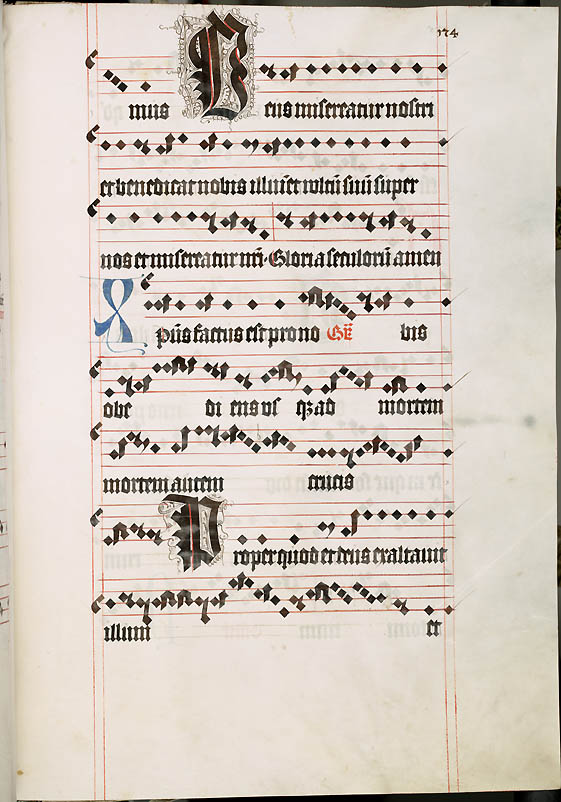 174
mus Deus misereatur nostri
et benedicat nobis illuīet vultū suū super
nos et misereatur nr̄i. Gloria seculorū amen
Xp̄us factus est pro no Gr̄ bis
obe di ens vsqȝ ad mortem
mortem autem crucis
Propter quod et deus exaltauit
illum et